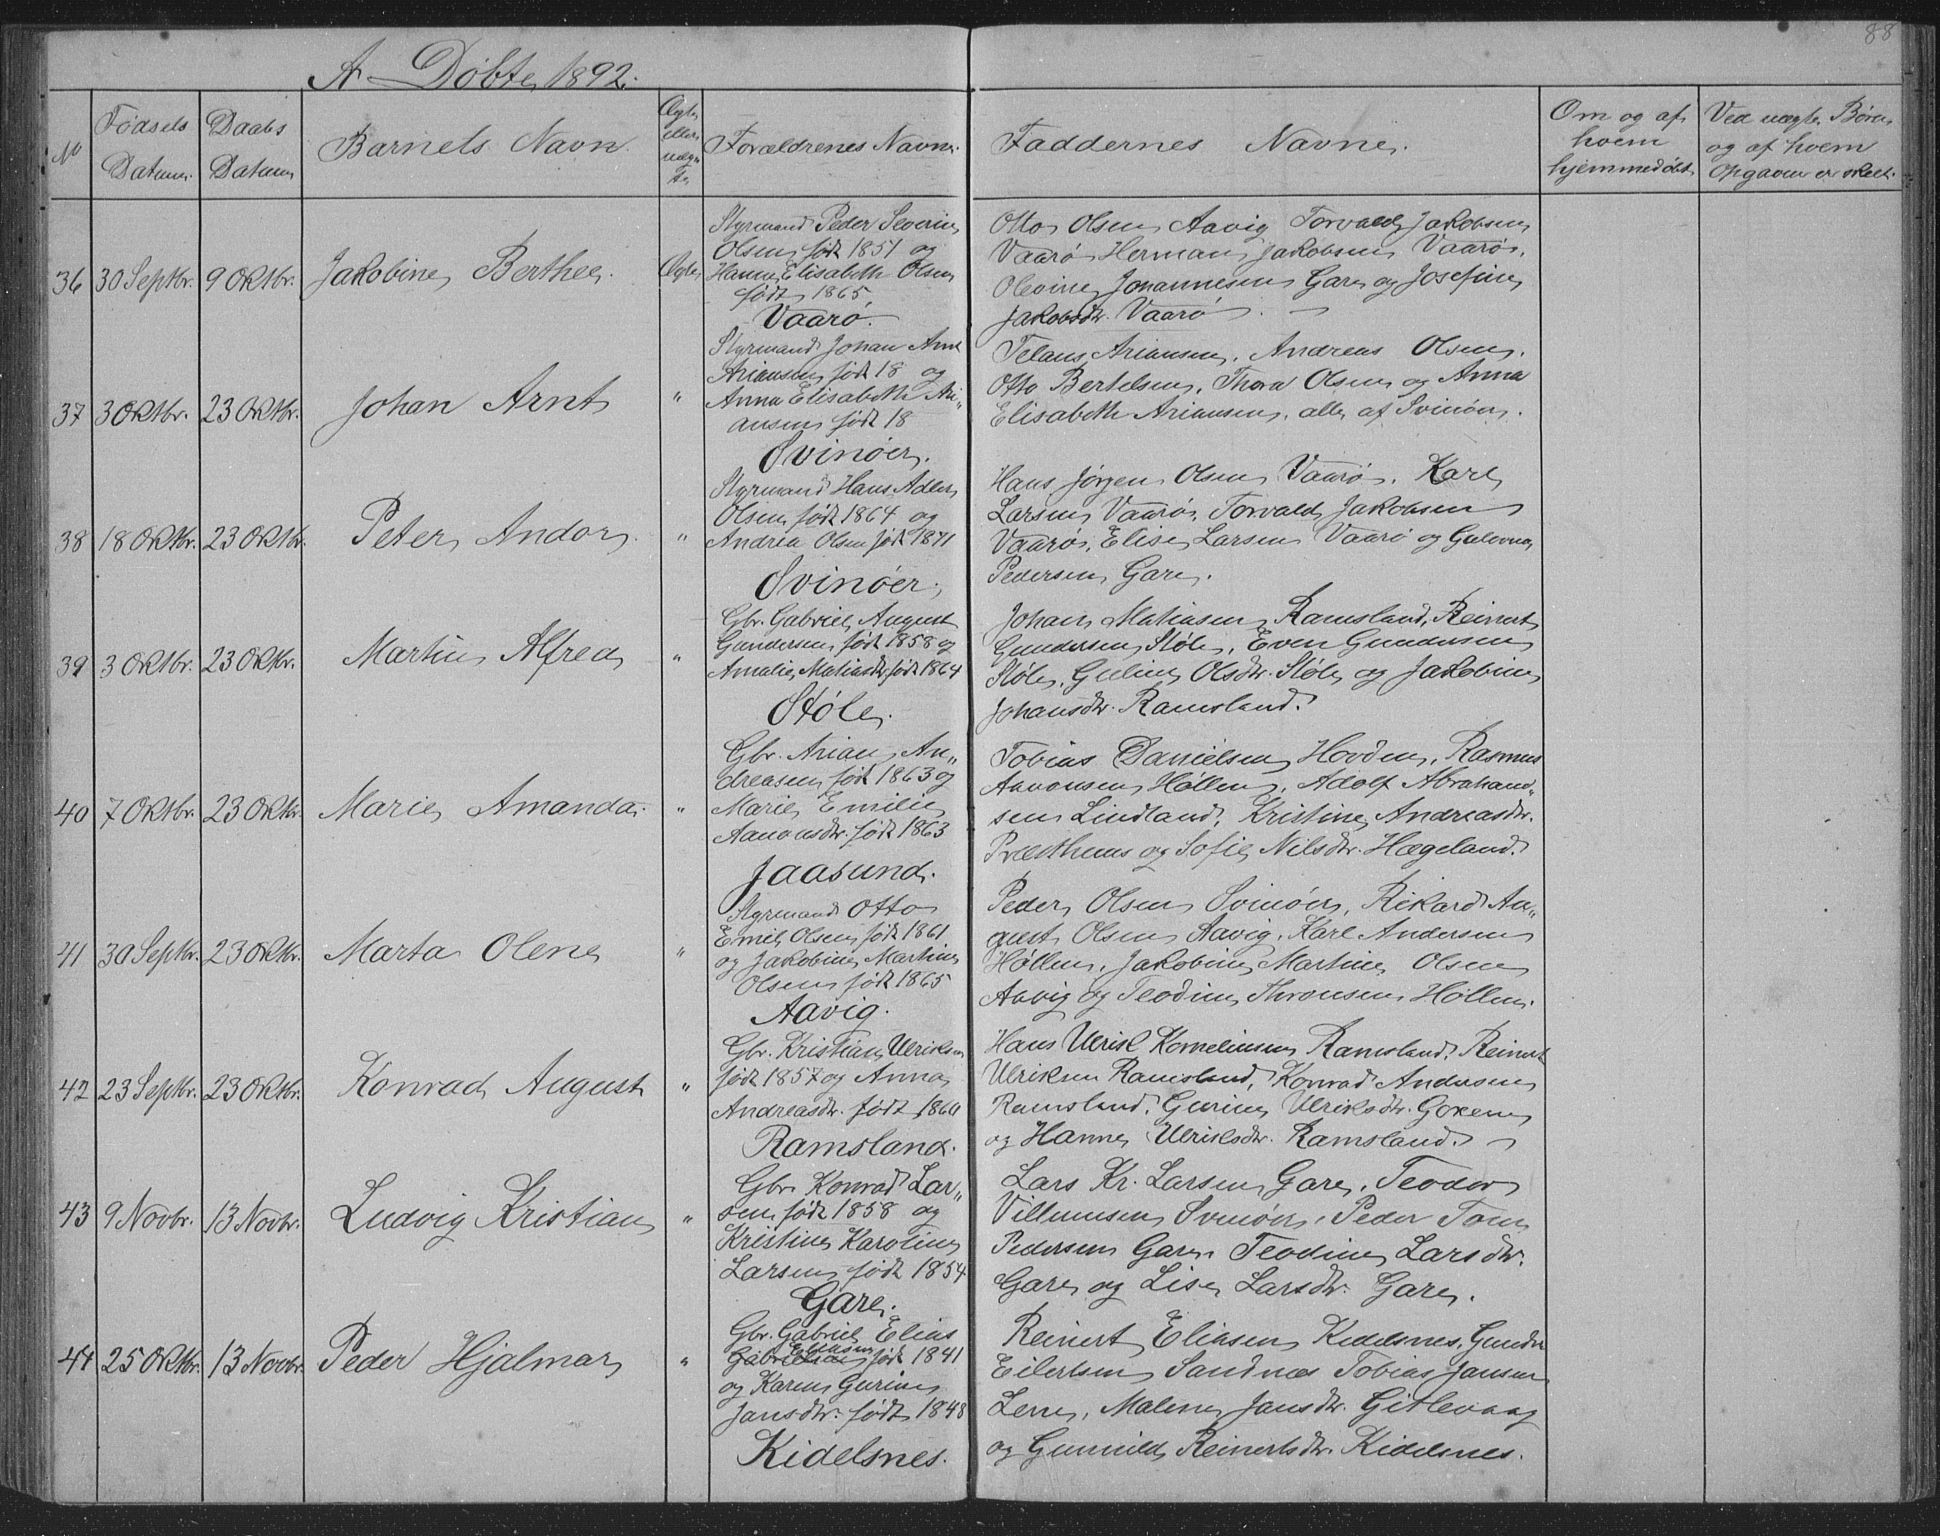 88
A Döbte, 1892.
No
Fødsels Datum.
Daabs Datum
Barnets Navn.
Ægte eller uægte
Forældrenes Navne.
Faddernes Navne.
Om og af hvem hjemmedøbt
Ved uægte Børn og af hvem Opgaven er skeet.
36 30 Septbr. 9 Oktbr. Jakobine Berthee. Ægte
Styrmand Peder Severin
Olsen født 1851 og
Hanne Elisabeth Olsen
født 1865,
Vaarø.
Otto Olsen Aavig Torvald Jakobsen
Vaarø Herman Jakobsen Vaarø,
Olevine Johannesen Gare og Josefine
Jakobsdtr. Vaarø.
37 3 Oktbr. 23 Oktbr. Johan Arnt "
Styrmand Johan Arnt
Ariansen født 18 og
Anna Elisabeth Ari„
ansen født 18
Svinøer.
Telaus Ariansen, Andreas Olsen.
Otto Bertelsen, Thora Olsen og Anna
Elisabeth Ariansen, alle af Svinøer.
38 18 Oktbr. 23 Oktbr. Peter Andor "
Styrmand Hans Adler
Olsen født 1864 og
Andrea Olsen født 1871
Svinøer,
Hans Jörgen Olsen Vaarø, Karl
Larsen Vaarø, Torvald Jakobsen
Vaarø, Elise Larsen Vaarø og Gulovna
Pedersen Gare.
39 3 Oktbr. 23 Oktbr. Martin Alfred "
Gbr. Gabriel August
Gundersen født 1858 og
Amalie Matiasdtr født 1864
Støle.
Johan Matiasen Ramsland, Reinert
Gundersen Støle, Even Gundersen
Støle, Guline Olsdtr. Støle og Jakobine
Johansdtr. Ramsland.
40 7 Oktbr. 23 Oktbr. Marie Amanda. "
Gbr. Arian An„
dreasen født 1863 og
Marie Emilie
Aanonsdtr. født 1863
Jaasund.
Tobias Danielsen Hovden, Rasmus
Aanonsen Høllen, Adolf Abraham„
sen Lindland, Kristine Andreasdtr.
Præsthuus og Sofie Nilsdtr. Hægeland.
41 30 Septbr. 23 Oktbr. Marta Olene "
Styrmand Otto
Emil Olsen født 1861
og Jakobine Martine
Olsen født 1865
Aavig.
Peder Olsen Svinøer, Rikard Au„
gust Olsen Aavig, Karl Andersen
Høllen, Jakobine Martine Olsen
Aavig og Teodine Thronsen Høllen.
42 23 Septbr. 23 Oktbr. Konrad August "
Gbr. Kristian Ulriksen
født 1857 og Anna
Andreasdtr. født 1860
Ramsland.
Hans Ulrik Korneliusen Ramsland, Reinert
Ulriksen Ramsland, Konrad Andersen
Ramsland, Gurine Ulriksdtr. Goxem
og Hanne Ulriksdtr. Ramsland.
43 9 Novbr. 13 Novbr. Ludvig Kristian "
Gbr. Konrad Lar„
sen født 1858 og
Kristine Karoline
Larsen født 1854
Gare.
Lars Kr. Larsen Gare, Teodor
Villumsen Svinøer, Peder Tom
Pedersen Gare, Teodine Larsdtr.
Gare og Lise Larsdtr. Gare.
44 25 Oktbr. 13 Novbr. Peder Hjalmar "
Gbr. Gabriel Elias
Eliassen
født 1841
og Karen Gurine
Jansdtr. født 1848
Kidelsnes.
Reinert Eliasen Kidelsnes, Gunder
Eilertsen Sandnes Tobias Jansen
Lerre, Malene Jansdtr. Gitlevaag
og Gunnild Reinertsdtr. Kidelsnes.